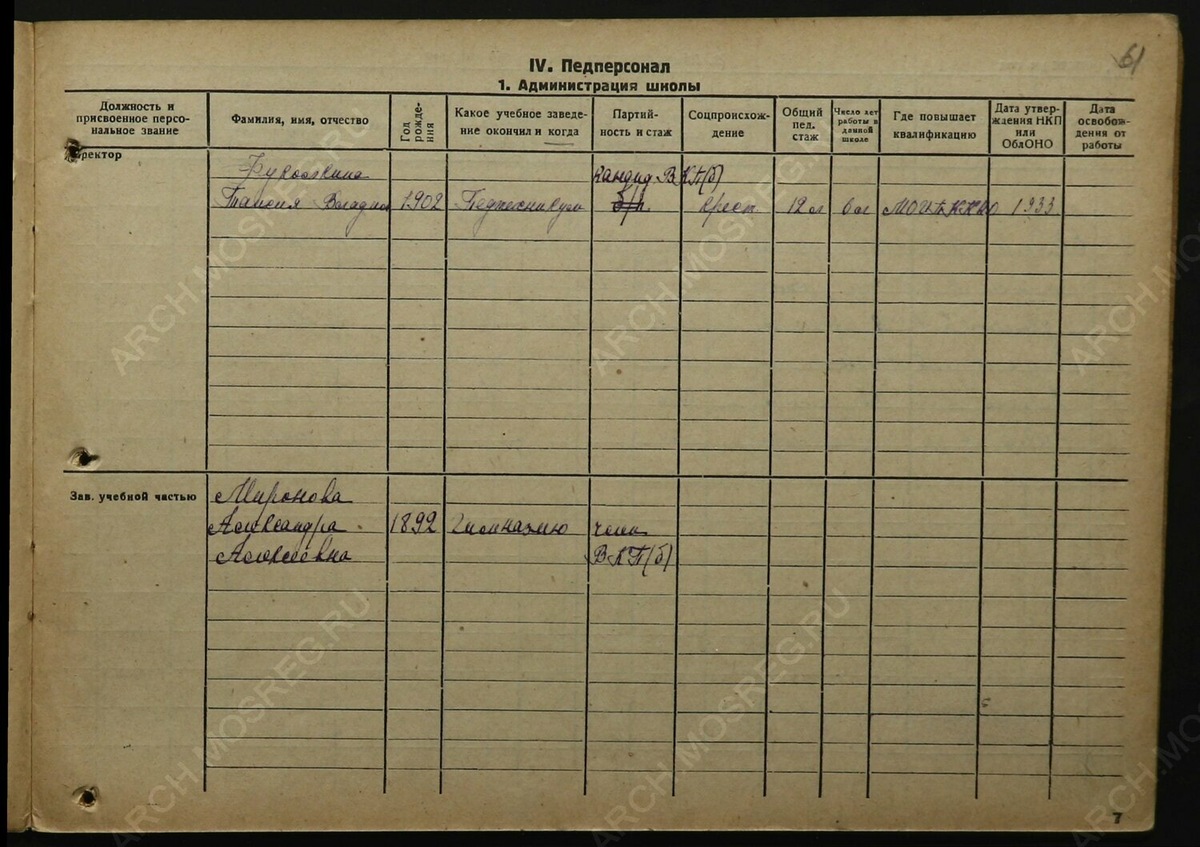 61
IV. Педперсонал
1. Администрация школы
Должность и присвоенное персональное звание
Фамилия, имя, отчество
Год рождения
Какое учебное заведение окончил и когда
Партийность и стаж
Соцпроисхождение
Общий пед. стаж
Число лет работы в данной школе
Где повышает квалификацию
Дата утверждения НКП или ОблОНО
Дата освобождения от работы
Директор
кандид. ВКП(б)
Таисия 1902 Педтехникум б/п крест. 12 л 6 л 1933
Зав. учебной частью
Миронова
Александра 1892 Гимназию член
Алексеевна ВКП(б)
7
ARCH.MOSREG.RU